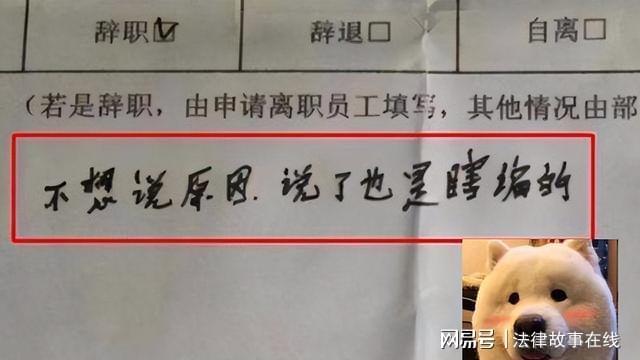 辞职☑ 辞退☐ 自离☐
（若是辞职，由申请离职员工填写，其他情况由部
不想说原因.说了也是瞎编的
网易号 | 法律故事在线